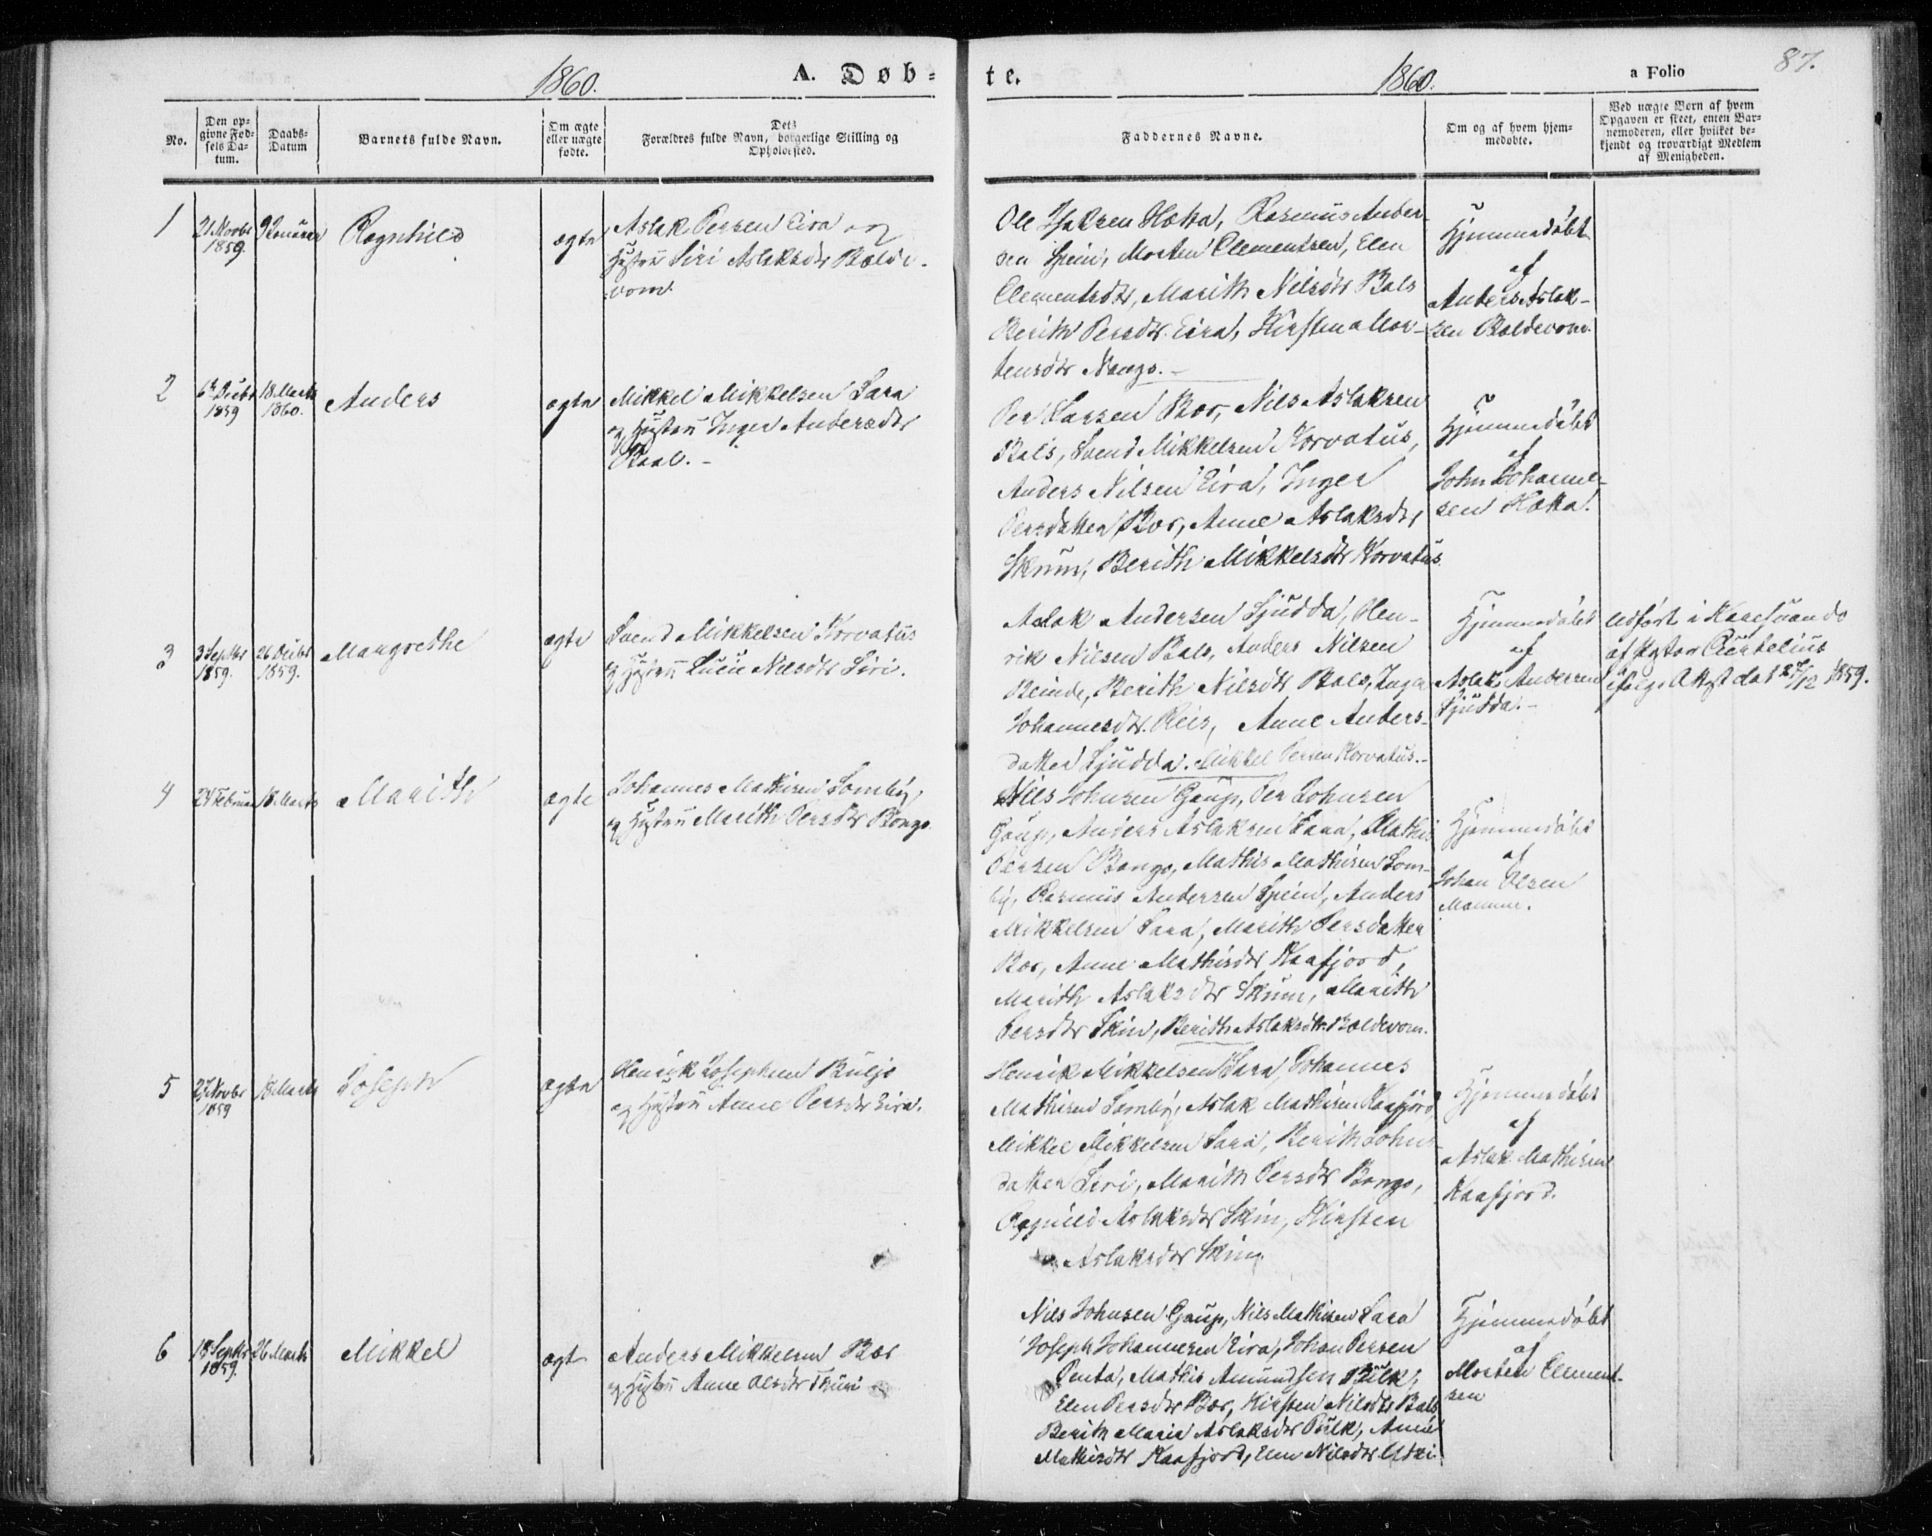 1860. A. Døb=
No.
Den op-
givne Fød-
sels Da-
tum.
Daabs-
Datum
Barnets fulde Navn.
Om ægte
eller uægte
fødte.
Dets
Forældres fulde Navn, borgerlige Stilling og
Opholdssted.
1
21 Novbr
1859.
9 Januar
Ragnhild
ægte
Aslak Persen Eira og
Hustru Siri Aslaksdtr Baldevom.
2
6te Decbr
1859
18 Marts
1860.
Anders
ægte
Mikkel Mikkelsen Sara
og Hustru Inger Andersdtr
3
3 Septbr
1859.
26 Decbr
1859.
Margrethe
ægte
Svend Mikkelsen Korvatus
og Hustru Nilsdtr Siri.
4
24 Februar
18 Marts
Marith
ægte
Johannes Mathisen Somby,
og Hustru Marith Persdtr Bongo.
5
27 Novbr
1859
18 Marts
Joseph
ægte
Henrik Josephsen Buljo
og Hustru Anne Persdtr Eira.
6
18 Septbr
1859.
26 Marts
Mikkel
ægte
Anders Mikkelsen Bær
og Hustru Anne Olsdtr Thuri
te. 1860. a Folio 87.
Faddernes Navne.
Om og af hvem hjem-
medøbte.
Ved uægte Børn af hvem
Opgaven er skeet, enten Bar-
nemoderen, eller hvilket be-
kjendt og troværdigt Medlem
af Menigheden.
Ole Isaksen Hætta, Rasmus Ander-
sen Spein, Morten Clementsen, Elen
Clementsdtr, Marith Nilsdtr Bals
Berith Persdtr. Eira, Kirsten Mor-
tensdtr Nango.
Hjemmedøbt
af
Anders Aslak-
sen Baldevom.
Per Larsen Bær, Nils Aslaksen
Bals, Svend Mikkelsen Korvatus,
Anders Nilsen Eira, Inger
Persdatter Bær, Anne Aslaksdtr
Skum, Berith Mikkelsdtr Korvatus.
Hjemmedøbt
af
John Johanne-
sen Hætta.
Aslak Andersen Sjudda, Hen-
rik Nilsen Bals, Anders Nilsen
Beinde, Berith Nilsdtr Bals, Inger
Johannesdtr. Reis, Anne Anders-
datter Sjudda. Mikkel Persen Korvatus.
Hjemmedøbt
af
Aslak Andersen
Sjudda.
Udført i Karesuando
af Pastor
ifølge Attest dat 27/12 1859.
Nils Johnsen Gaup, Per Johnsen
Gaup, Anders Aslaksen Sara, Mathis
Persen Bongo, Mathis Mathisen Som-
by, Rasmus Andersen Spein, Anders
Mikkelsen Sara, Marith Persdatter
Bær, Anne Mathisdtr Kaafjord,
Marith Aslaksdtr Skum, Marith
Persdtr Skin, Berith Aslaksdtr. Baldevom.
Hjemmedøbt
af
Johan Olsen
Henrik Mikkelsen Sara, Johannes
Mathisen Somby, Aslak Mathisen Kaafjord,
Mikkel Mikkelsen Sara, Berith John-
datter Siri, Marith Persdtr Bongo,
Ragnild Aslaksdtr Skin, Kirsten
Aslaksdtr Skum
Hjemmedøbt
af
Aslak Mathisen
Kaafjord.
Nils Johnsen Gaup, Nils Mathisen Sara
Joseph Johannesen Eira, Johan Persen
Penta, Mathis Amundsen Bulk,
Elen Persdtr Bær, Kirsten Nilsdtr Bals
Berith Maria Aslaksdtr Bulk, Anne
Mathisdtr Kaafjord, Elen Nilsdtr Utsi.
Hjemmedøbt
af
Morten Clement-
sen